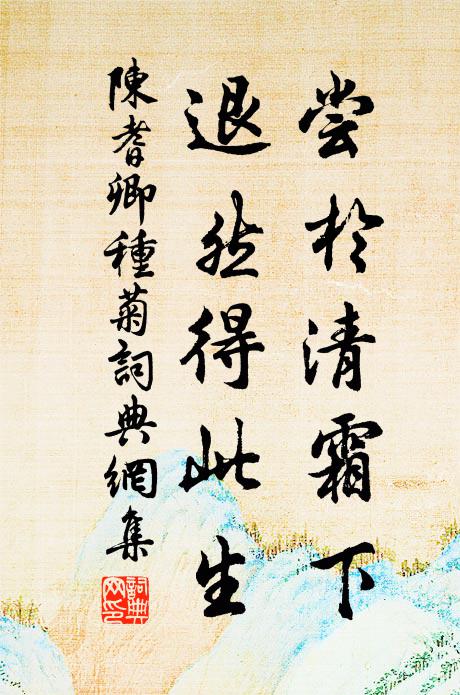 尝於清霜下
退然得此生
陳耆卿種菊詞典網集
詞典